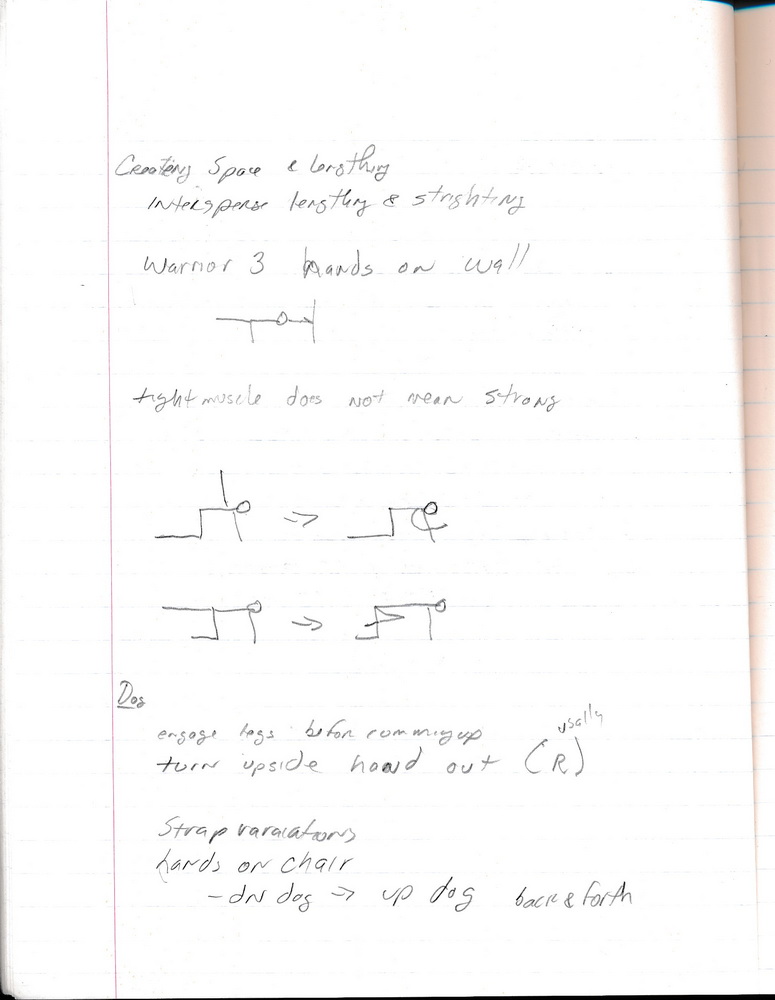 Creating Space & lengthing
Intersperse lengthing & strighting
Warrior 3 hands on wall
tight muscle does not mean strong
Dog
engage legs befor comming up
usally
turn upside hand out (R)
Strap varaiations
hands on chair
- dn dog => up dog back & forth